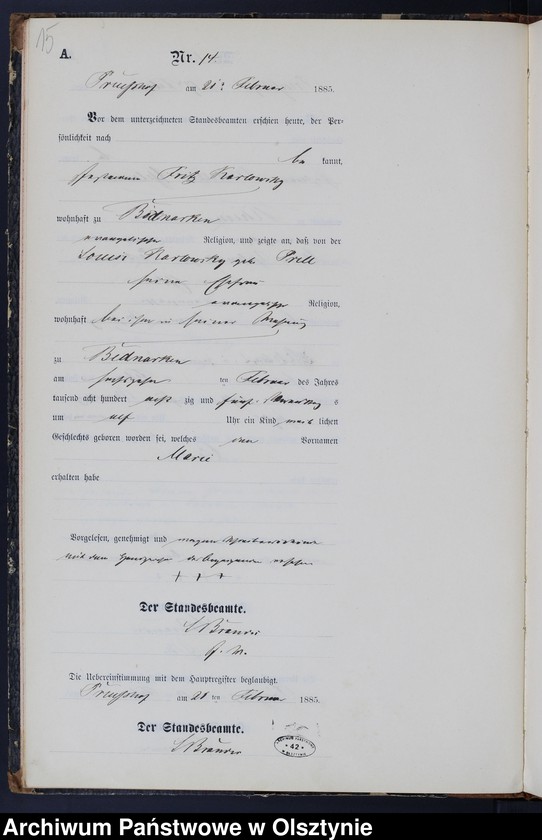 15
A.
Nr. 14.
am 21. Februar 1885.
Vor dem unterzeichneten Standesbeamten erschien heute, der Per-
sönlichkeit nach
be kannt,
Fritz Karlowsky
wohnhaft zu Bednarken
evangelischer Religion, und zeigte an, daß von der
Louise Karlowsky geb. Prill
seiner Ehefrau
evangelischer Religion,
wohnhaft bei ihm in seiner Wohnung
zu Bednarken
am sechszehn ten Februar des Jahres
tausend acht hundert acht zig und fünf
um elf Uhr ein Kind weib lichen
Geschlechts geboren worden sei, welches den Vornamen
Marie
erhalten habe
Vorgelesen, genehmigt und wegen
mit dem Handzeichen des versehen
+ + +
Der Standesbeamte.
Die Uebereinstimmung mit dem Hauptregister beglaubigt.
am 21 ten Februar 1885.
Der Standesbeamte.
42
Archiwum Państwowe w Olsztynie